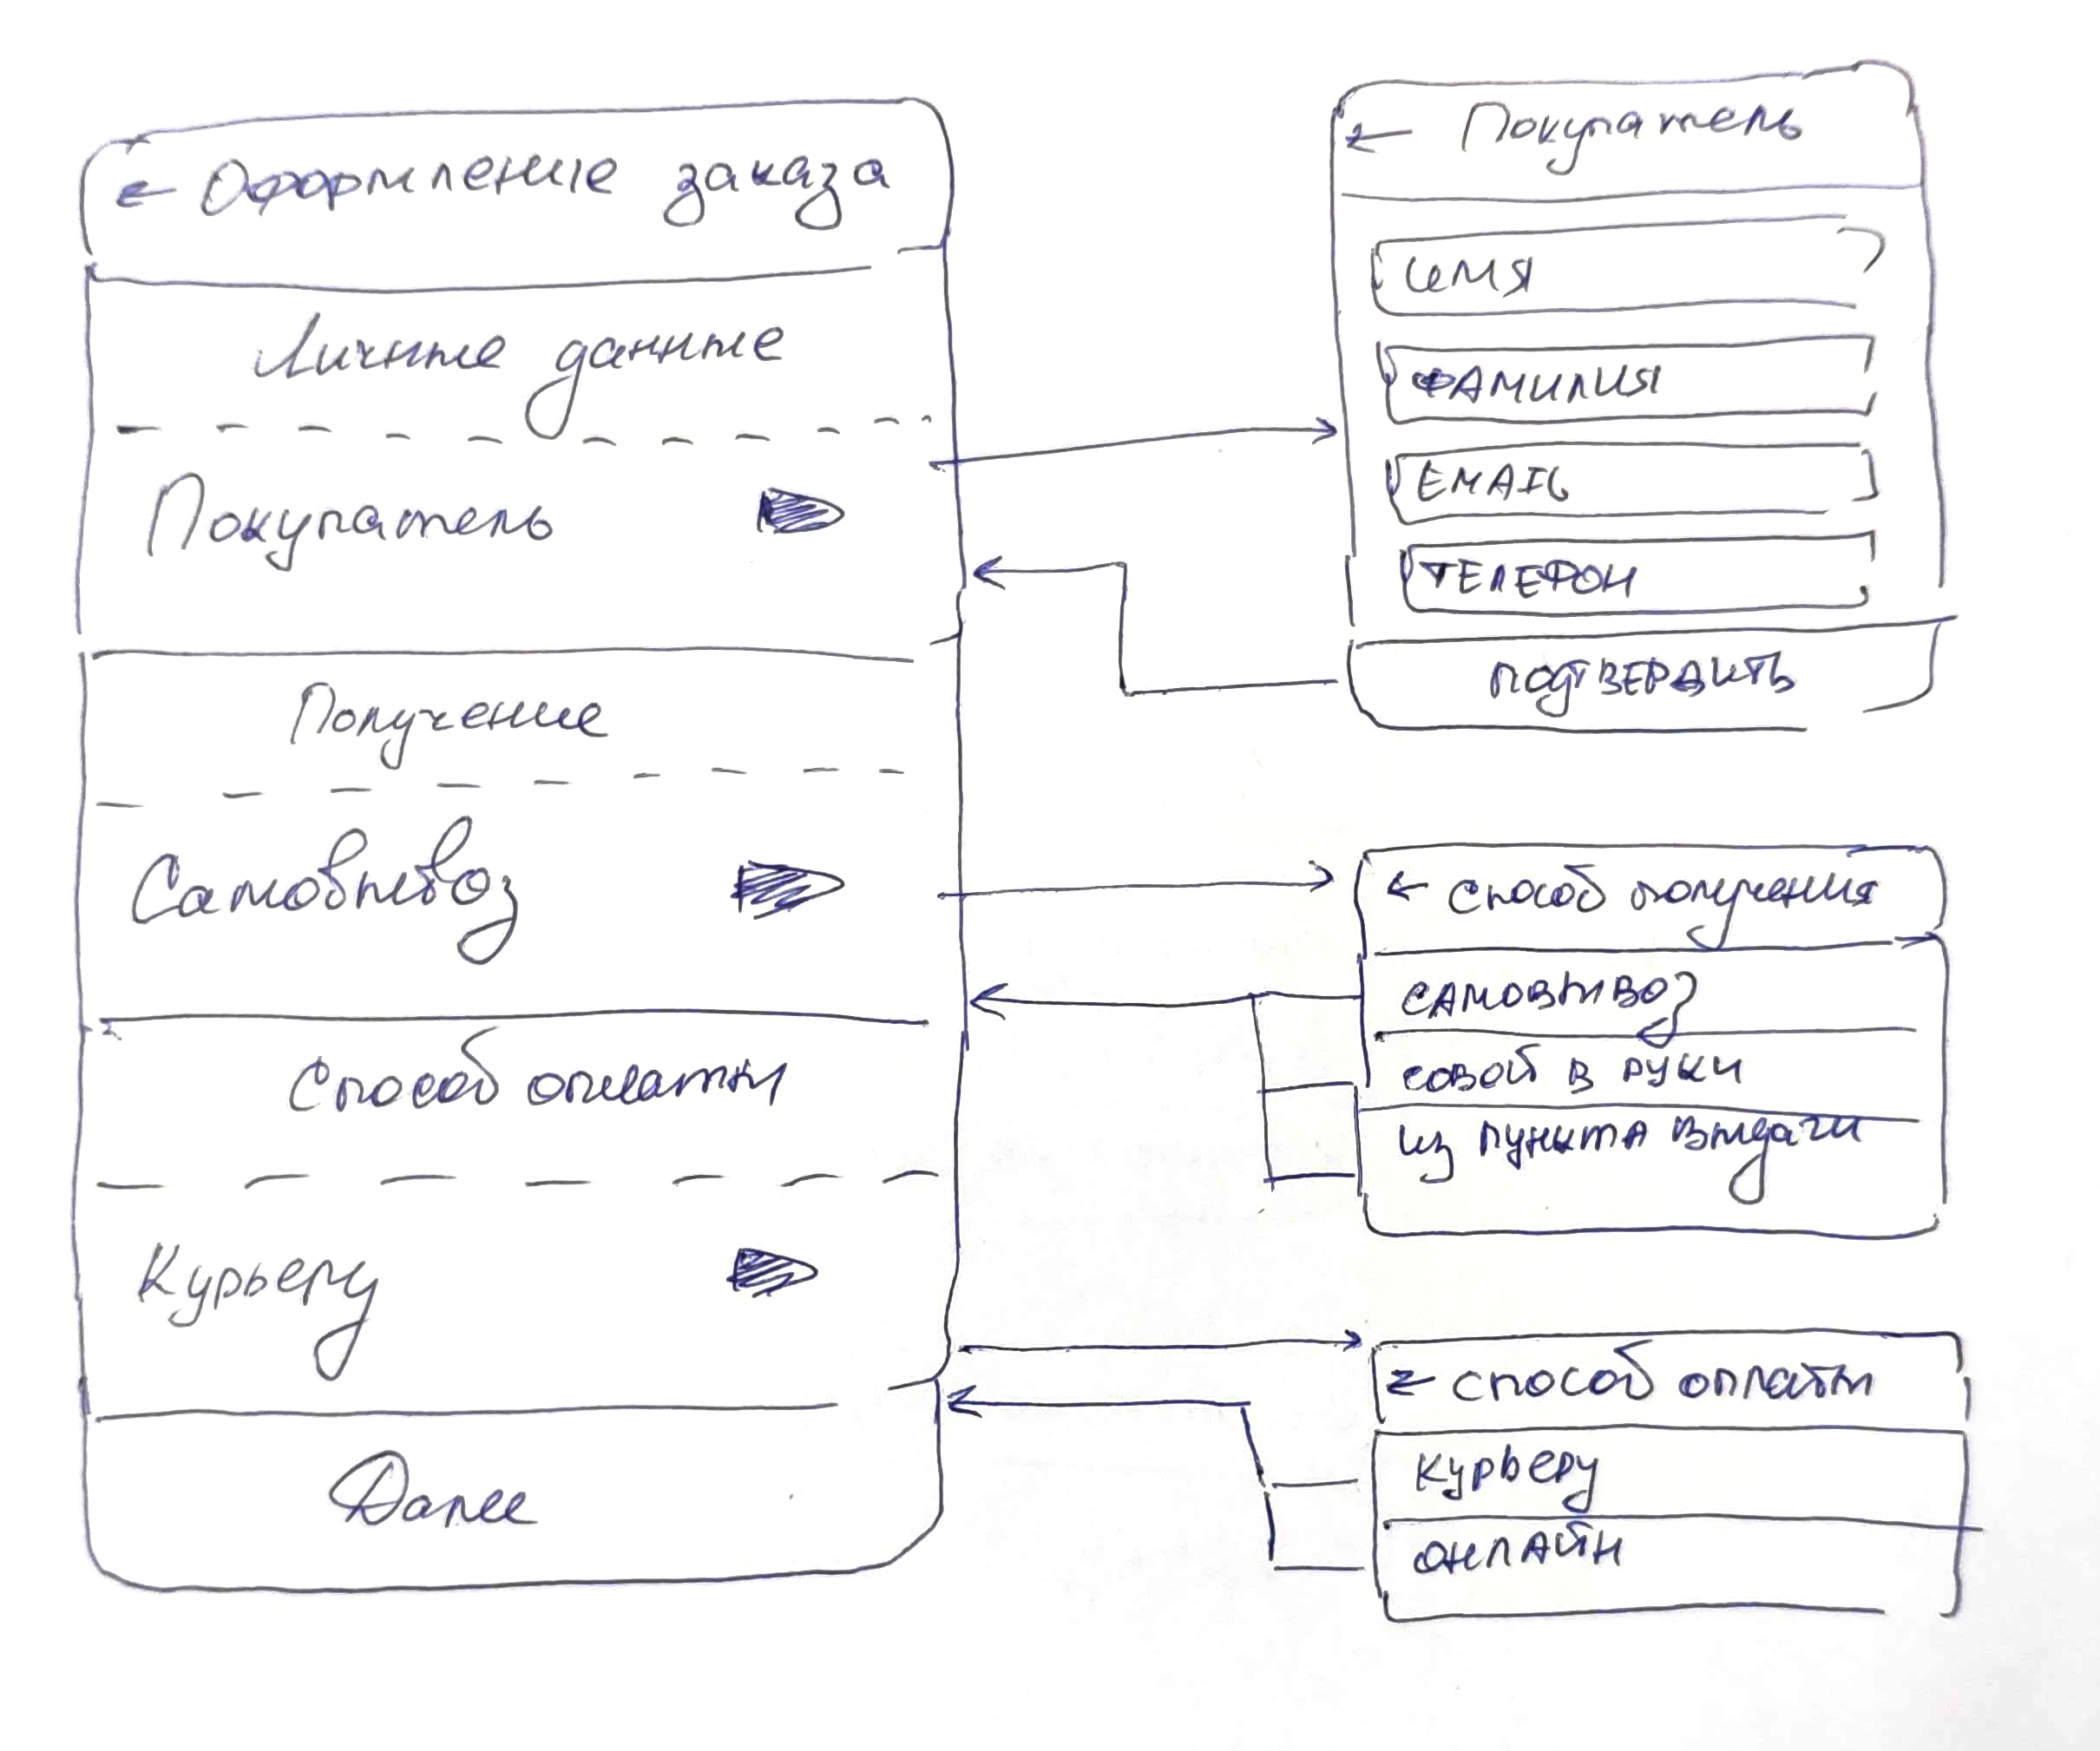 Оформление заказа
Личные данные
Покупатель
Получение
Самовывоз
Способ оплаты
Курьеру
Далее
Покупатель
ИМЯ
ФАМИЛИЯ
EMAIL
ТЕЛЕФОН
ПОДТВЕРДИТЬ
Способ получения
САМОВЫВОЗ
СОВОЙ В РУКИ
ИЗ ПУНКТА ВЫДАЧИ
СПОСОБ ОПЛАТЫ
КУРЬЕРУ
ОНЛАЙН